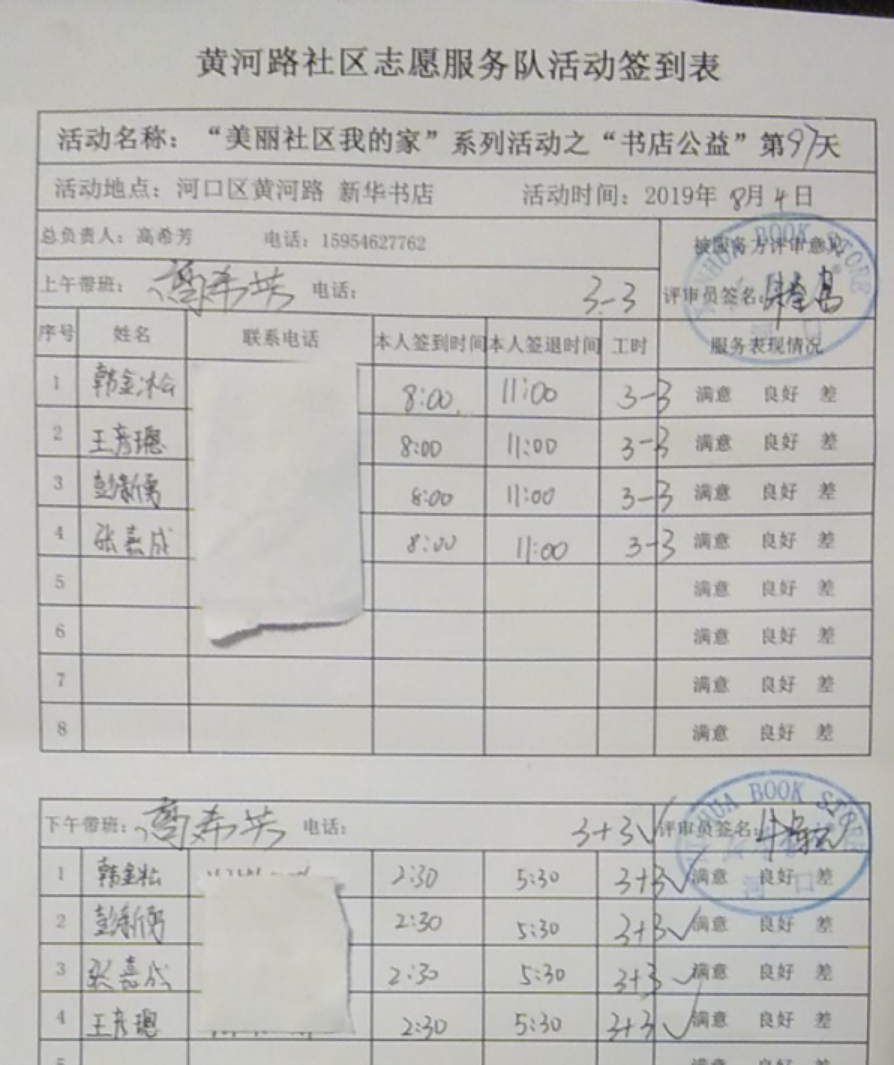 黄河路社区志愿服务队活动签到表
活动名称：“美丽社区我的家”系列活动之“书店公益”第97天
活动地点：河口区黄河路 新华书店 活动时间：2019年 8月 4日
总负责人：高希芳 电话：15954627762 被服务方评审意见
上午带班：高希芳 电话： 3-3 评审员签名：
序号 姓名 联系电话 本人签到时间 本人签退时间 工时 服务表现情况
1 韩金松 8:00 11:00 3-3 满意 良好 差
2 王彦璁 8:00 11:00 3-3 满意 良好 差
3 彭新勇 8:00 11:00 3-3 满意 良好 差
4 张嘉成 8:00 11:00 3-3 满意 良好 差
5 满意 良好 差
6 满意 良好 差
7 满意 良好 差
8 满意 良好 差
XINHUA BOOK STORE
河口
下午带班：高希芳 电话： 3+3√ 评审员签名：
1 韩金松 2:30 5:30 3+3√ 满意 良好 差
2 彭新勇 2:30 5:30 3+3√ 满意 良好 差
3 张嘉成 2:30 5:30 3+3√ 满意 良好 差
4 王彦璁 2:30 5:30 3+3√ 满意 良好 差
5 满意 良好 差
XINHUA BOOK STORE
河口